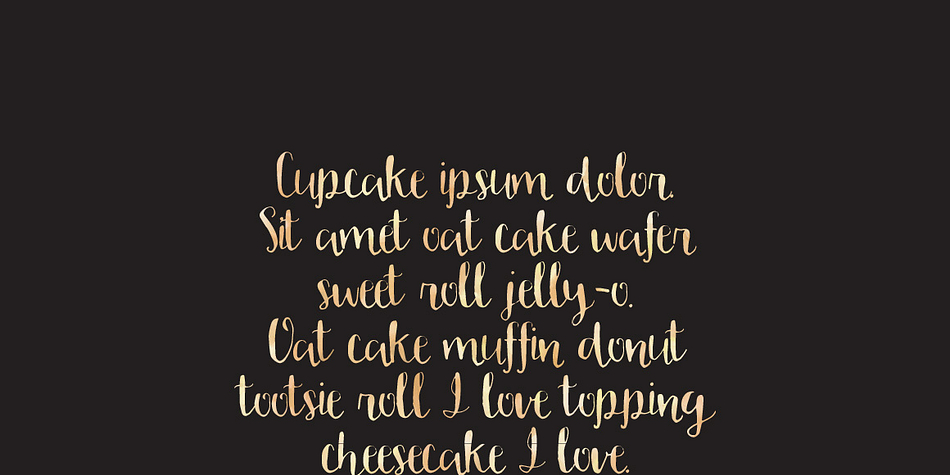 Cupcake ipsum dolor.
Sit amet oat cake wafer
sweet roll jelly-o.
Oat cake muffin donut
tootsie roll I love topping
cheesecake I love.